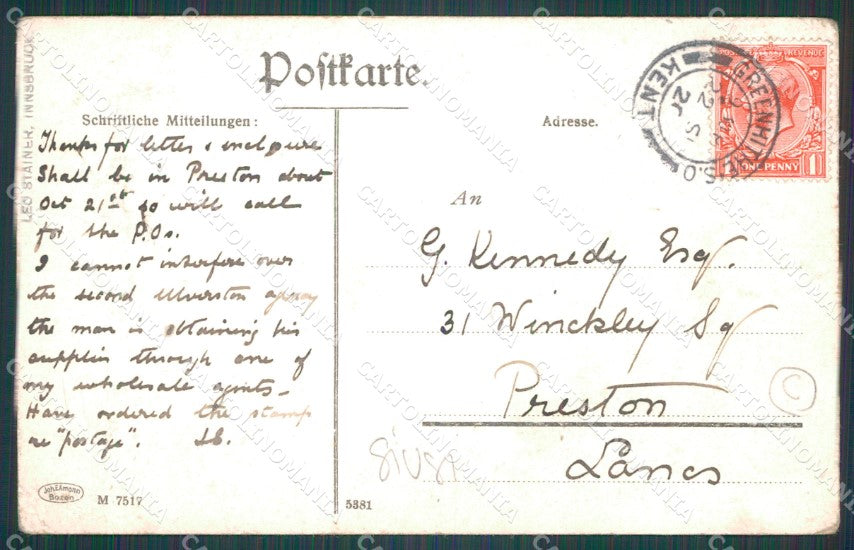 Postkarte.
LEO STAINER, INNSBRUCK
Schriftliche Mitteilungen:
Adresse.
Thanks for letter & enclosure
Shall be in Preston about
Oct 21st so will call
for the P.Os.
I cannot interfere over
the second Ulverston agency
the man is obtaining his
supplies through one of
my wholesale agents –
Have ordered the stamp
re "postage".
Joh. F. Amonn
Bozen
M 7517
5381
GREENHITHE S.O.
KENT
REVENUE
ONE PENNY
1
An
G. Kennedy Esq.
31 Winckley Sq
Preston
Lancs
C
SIUSI
CARTOLINOMANIA